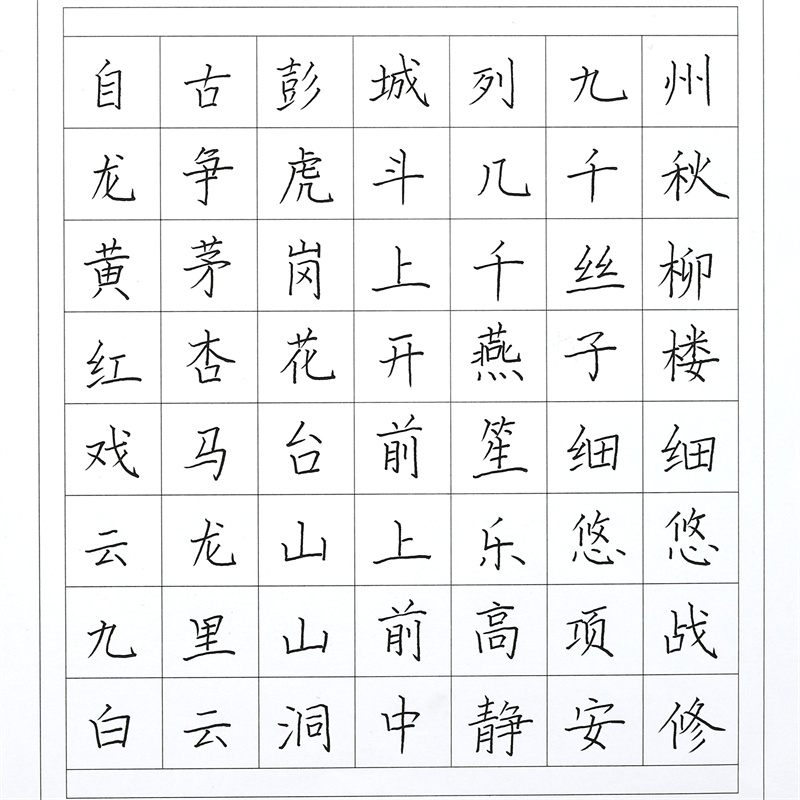 自古彭城列九州
龙争虎斗几千秋
黄茅岗上千丝柳
红杏花开燕子楼
戏马台前笙细细
云龙山上乐悠悠
九里山前高项战
白云洞中静安修